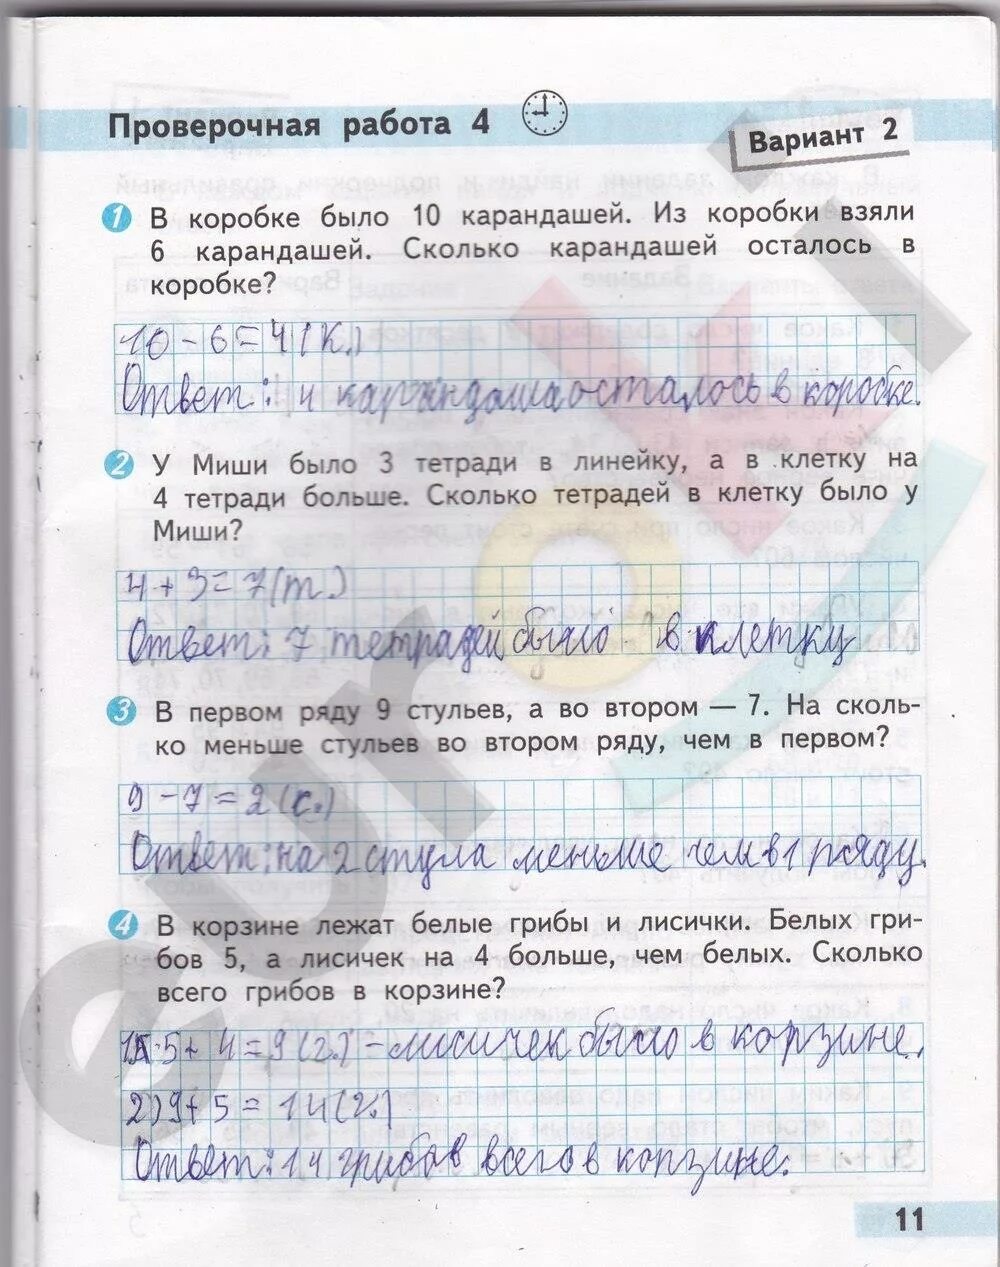 Проверочная работа 4
Вариант 2
1 В коробке было 10 карандашей. Из коробки взяли
6 карандашей. Сколько карандашей осталось в
коробке?
10 - 6 = 4 (к.)
Ответ: 4 карандаша осталось в коробке.
2 У Миши было 3 тетради в линейку, а в клетку на
4 тетради больше. Сколько тетрадей в клетку было у
Миши?
4 + 3 = 7 (т.)
Ответ: 7 тетрадей было в клетку
3 В первом ряду 9 стульев, а во втором — 7. На сколь-
ко меньше стульев во втором ряду, чем в первом?
9 - 7 = 2 (с.)
Ответ: на 2 стула меньше чем в 1 ряду.
4 В корзине лежат белые грибы и лисички. Белых гри-
бов 5, а лисичек на 4 больше, чем белых. Сколько
всего грибов в корзине?
1) 5 + 4 = 9 (г.) - лисичек было в корзине.
2) 9 + 5 = 14 (г.)
Ответ: 14 грибов всего в корзине.
11